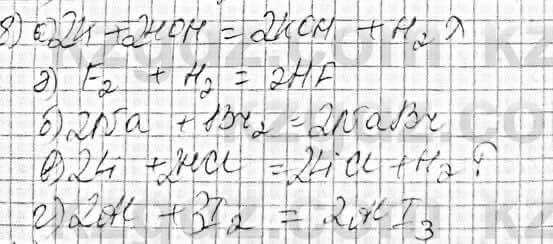 8) а) 2K + 2HOH = 2KOH + H₂↑
д) F₂ + H₂ = 2HF
б) 2Na + Br₂ = 2NaBr
в) 2Li + 2HCl = 2LiCl + H₂↑
г) 2Al + 3I₂ = 2AlI₃